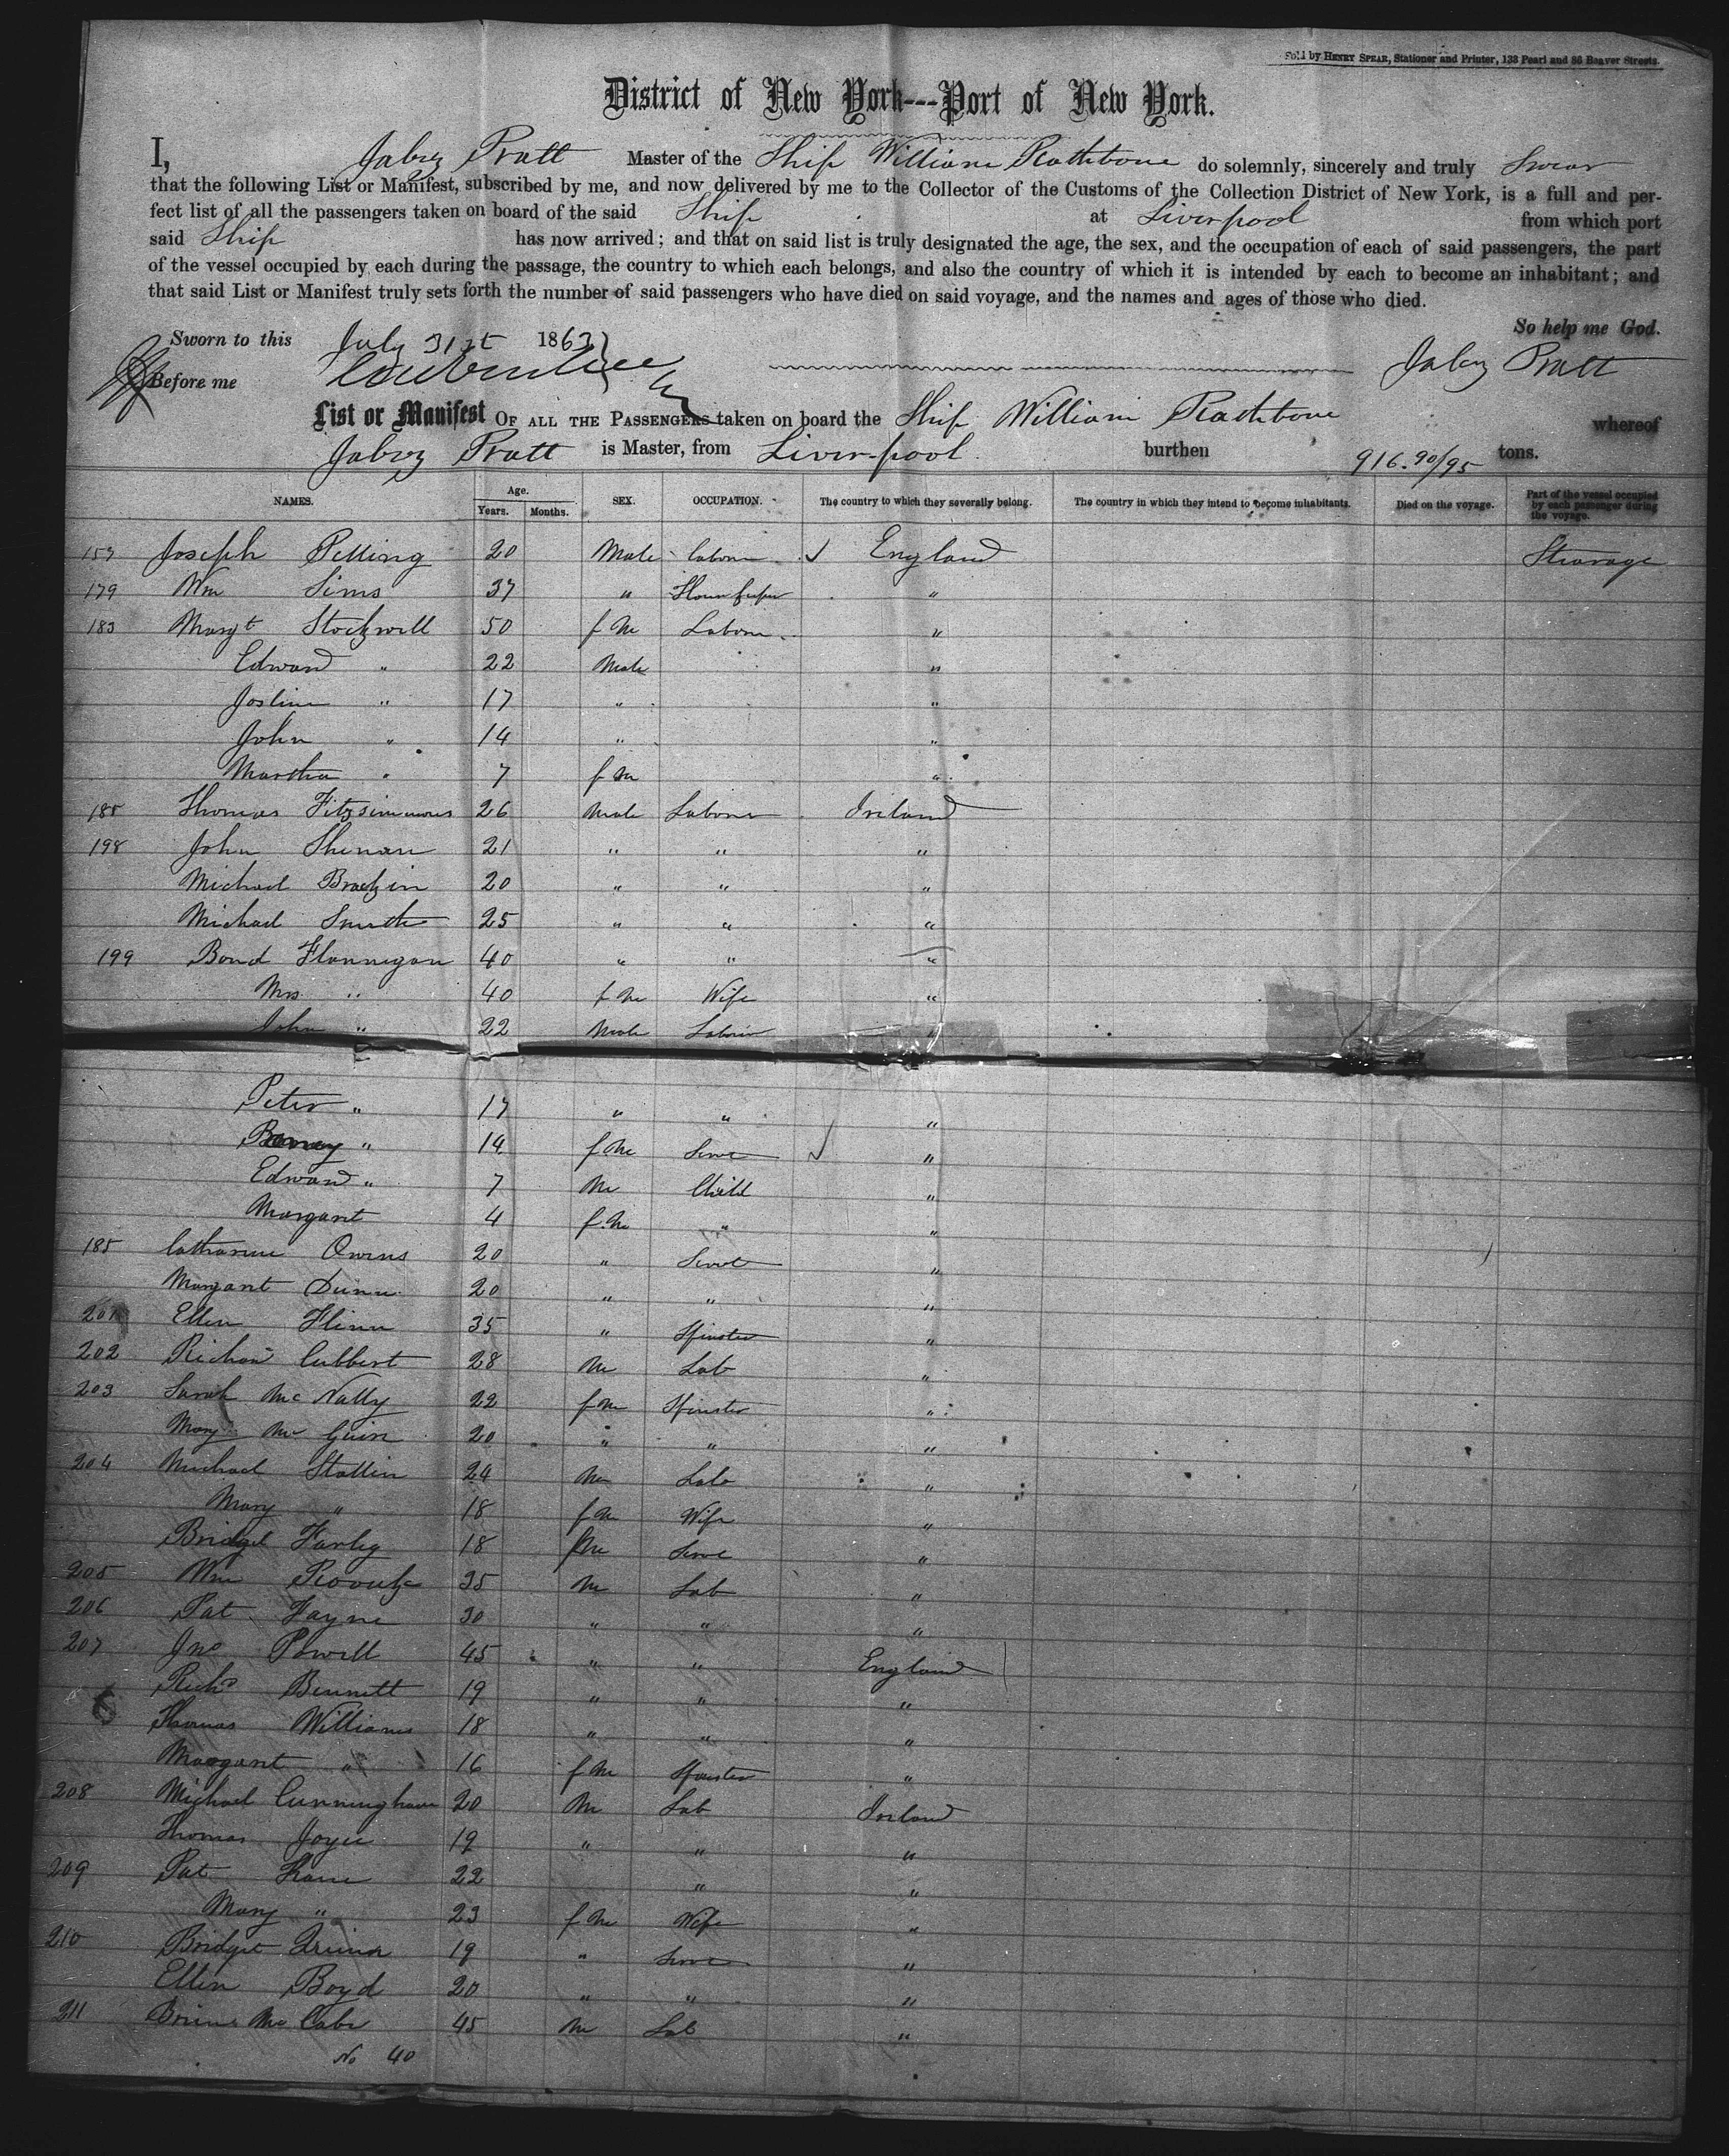 Sold by Henry Spear, Stationer and Printer, 133 Pearl and 86 Beaver Streets.
District of New York---Port of New York.
I, Jabez Pratt Master of the Ship William Rathbone do solemnly, sincerely and truly Swear
that the following List or Manifest, subscribed by me, and now delivered by me to the Collector of the Customs of the Collection District of New York, is a full and per-
fect list of all the passengers taken on board of the said Ship at Liverpool from which port
said Ship has now arrived; and that on said list is truly designated the age, the sex, and the occupation of each of said passengers, the part
of the vessel occupied by each during the passage, the country to which each belongs, and also the country of which it is intended by each to become an inhabitant; and
that said List or Manifest truly sets forth the number of said passengers who have died on said voyage, and the names and ages of those who died.
So help me God.
Sworn to this July 31st 1863
Before me
Jabez Pratt
List or Manifest of all the Passengers taken on board the Ship William Rathbone whereof
Jabez Pratt is Master, from Liverpool burthen 916.90/95 tons.
NAMES. Age. Years. Months. SEX. OCCUPATION. The country to which they severally belong. The country in which they intend to become inhabitants. Died on the voyage. Part of the vessel occupied by each passenger during the voyage.
157 Joseph Pelling 20 Male labour England Stearage
179 Wm Sims 37 " "
183 Margt Stockwell 50 f M Labour "
Edward " 22 Male "
Joslin " 17 " "
John " 14 " "
Martha " 7 f M "
185 Thomas Fitzsimmons 26 Male Labour Ireland
198 John Shenan 21 " " "
Michael Brackin 20 " " "
Michael Smith 25 " " "
199 Bond Flannegan 40 " " "
Mrs " 40 f M Wife "
John " 22 Male Labour "
Peter " 17 " " "
" 14 f M Serve "
Edward " 7 M Child "
Margaret 4 f M " "
185 Catharine Owens 20 " Servt "
Margaret Dunn 20 " " "
201 Ellen Flinn 35 " Spinster "
202 Richard Cubbert 28 M Lab "
203 Sarah McNally 22 f M Spinster "
Mary Mc Guin 20 " " "
204 Michael Stallin 24 M Lab "
Mary " 18 f M Wife "
Bridget Farley 18 f M Serve "
205 Wm 35 M Lab "
206 Pat Fayne 30 " " "
207 Jno Powell 45 " " England
Richd Bennett 19 " " "
Thomas Williams 18 " " "
Margaret " 16 f M Spinster "
208 Michael Cunningham 20 M Lab Ireland
Thomas Joyce 19 " " "
209 Pat Kane 22 " "
Mary " 23 f M Wife "
210 Bridget 19 " Serve "
Ellen Boyd 20 " " "
211 Brine McCabe 45 M Lab "
No 40